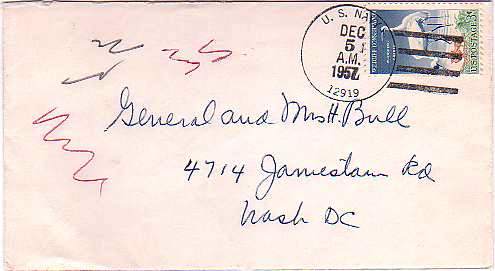 U. S. NA
DEC
5
A.M.
1957
12919
U.S. POSTAGE 3¢
General and Mrs H. Bull
4714 Jamestown Rd
Wash DC